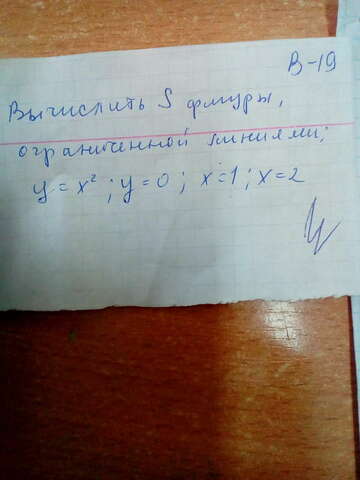 В-19
Вычислить S фигуры,
ограниченной линиями;
y = x² ; y = 0 ; x = 1 ; x = 2